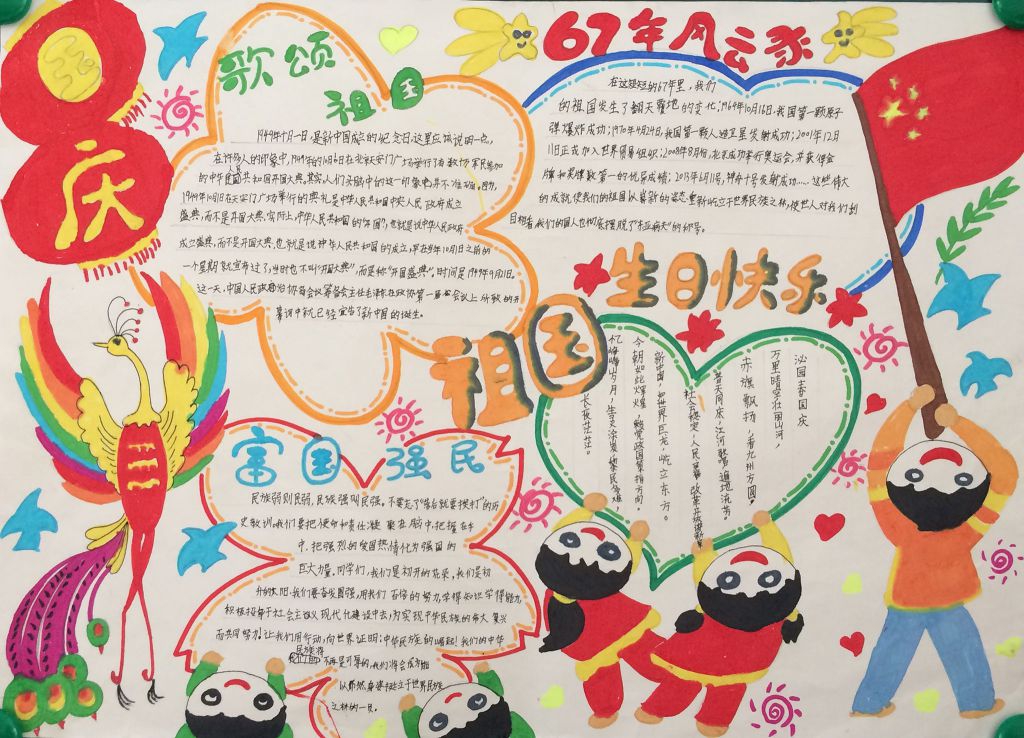 国庆
歌颂
祖国
1949年十月一日是新中国成立的纪念日。这里应该说明一点,
在许多人的印象中,1949年的10月1日在北京天安门广场举行了有数十万军民参加
的中华人民共和国开国大典。其实,人们头脑中的这一印象并不准确。因为,
1949年10月1日在天安门广场举行的典礼是中华人民共和国中央人民政府成立
盛典,而不是开国大典。实际上,中华人民共和国的"开国",也就是说中华人民政府
成立盛典,而不是开国大典。也就是说中华人民共和国的成立,早在当年10月1日之前的
一个星期就宣布过了,当时也不叫"开国大典",而是称"开国盛典"。时间是1949年9月21日。
这一天,中国人民政治协商会议筹备会主任毛泽东在政协第一届会议上所致的开
幕词中就已经宣告了新中国的诞生。
67年风云录
在这短短的67年里,我们
的祖国发生了翻天覆地的变化;1964年10月16日,我国第一颗原子
弹爆炸成功;1970年4月24日,我国第一颗人造卫星发射成功;2001年12月
11日正式加入世界贸易组织;2008年8月份,北京成功举行奥运会,并获得金
牌和奖牌数第一的优异成绩;2013年6月11号,神舟十号发射成功……这些伟大
的成就使我们的祖国以崭新的姿态重新屹立于世界民族之林,使世人对我们刮
目相看,我们的国人也彻底摆脱了"东亚病夫"的称号。
祖国
生日快乐
沁园春国庆
万里晴空,壮丽山河,
赤旗飘扬,看九州方圆,
普天同庆,江河歌唱,遍地流芳。
社会稳定,人民幸福,改革开放谱新章
新中国,如世界巨龙,屹立东方。
今朝如此辉煌,幸党政国策指方向。
忆峥嵘岁月,生灵涂炭,劳苦民众难,
长夜茫茫。
富国强民
民族弱则民弱,民族强则民强。不要忘了"落后就要挨打"的历
史教训,我们要把使命和责任凝聚在脑中,把握在手
中,把强烈的爱国热情化为强国的
巨大力量。同学们,我们是初开的花朵,我们是初
升的太阳,我们要奋发图强,用我们百倍的努力,学得知识,学得能力,
积极投身于社会主义现代化建设中去,为实现中华民族的伟大复兴
而共同努力!让我们用行动,向世界证明:中华民族的崛起!我们的中华
民族将
不再是可辱的,我们将会成为能
以昂然身姿挺立于世界民族
之林的一员。